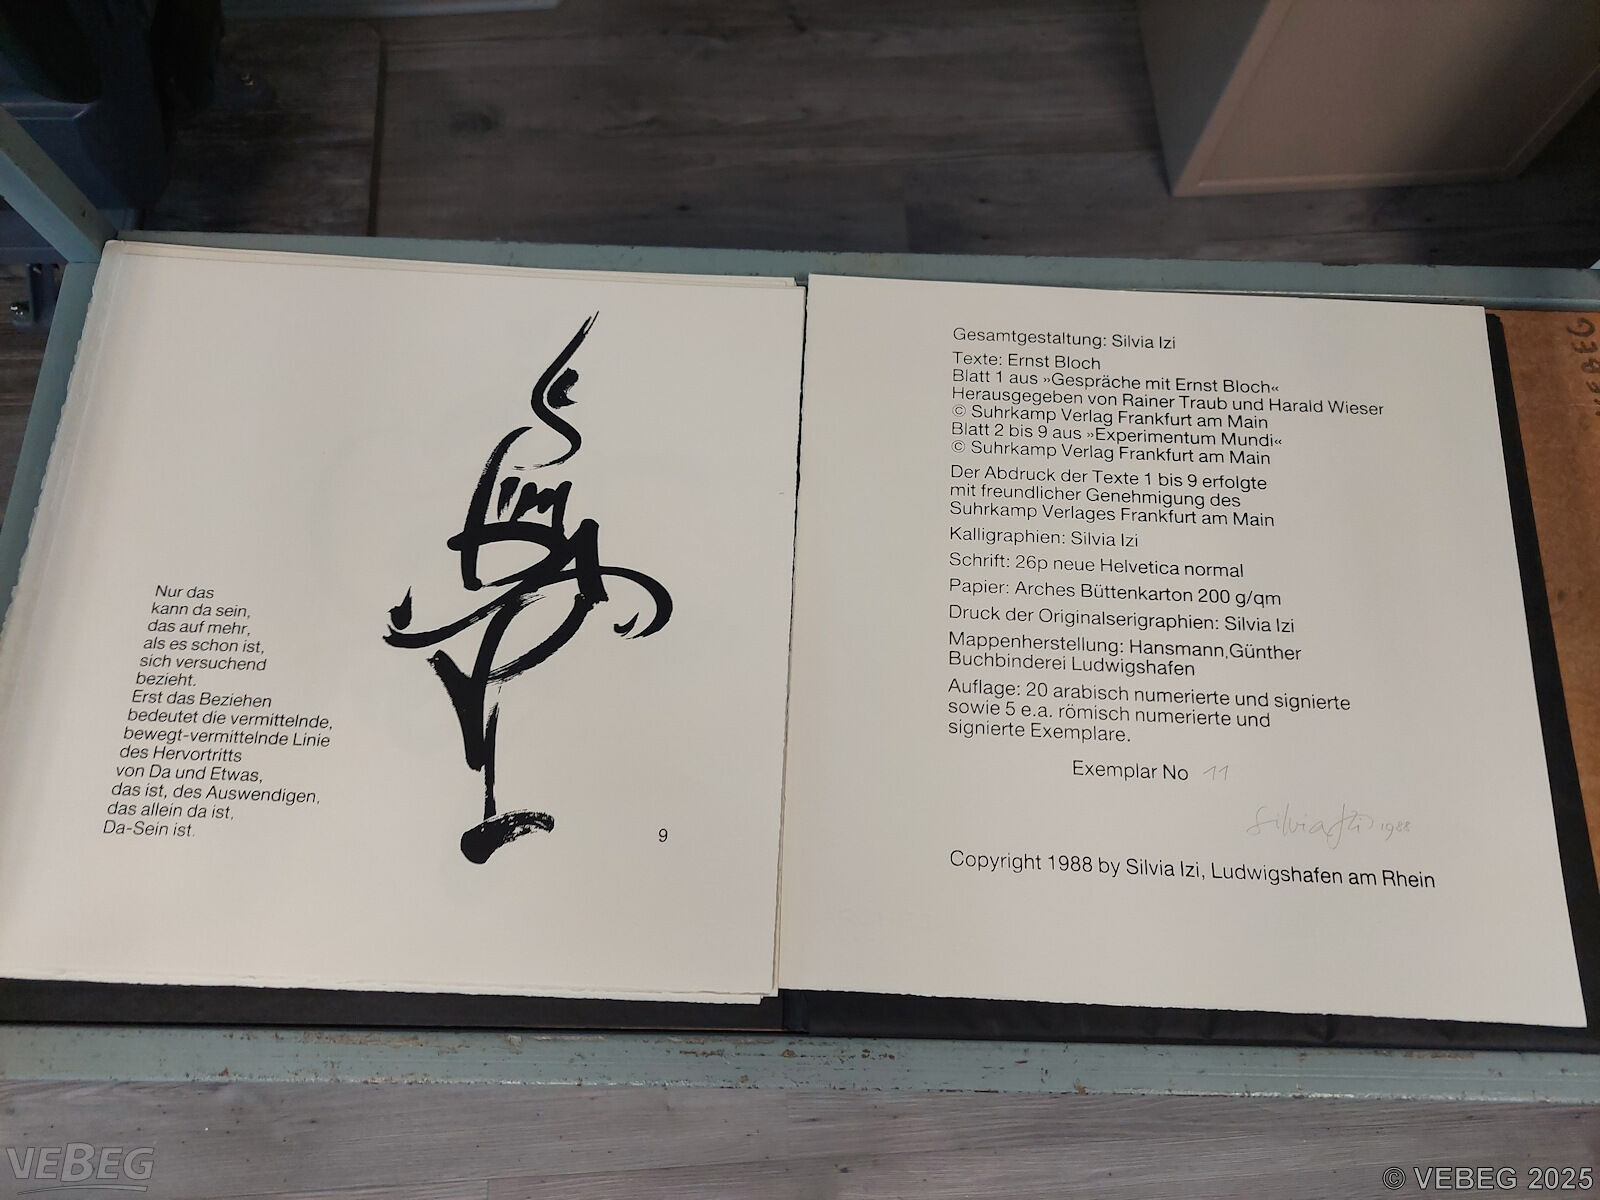 Nur das
kann da sein,
das auf mehr,
als es schon ist,
sich versuchend
bezieht.
Erst das Beziehen
bedeutet die vermittelnde,
bewegt-vermittelnde Linie
des Hervortritts
von Da und Etwas,
das ist, des Auswendigen,
das allein da ist,
Da-Sein ist.
9
Gesamtgestaltung: Silvia Izi
Texte: Ernst Bloch
Blatt 1 aus »Gespräche mit Ernst Bloch«
Herausgegeben von Rainer Traub und Harald Wieser
© Suhrkamp Verlag Frankfurt am Main
Blatt 2 bis 9 aus »Experimentum Mundi«
© Suhrkamp Verlag Frankfurt am Main
Der Abdruck der Texte 1 bis 9 erfolgte
mit freundlicher Genehmigung des
Suhrkamp Verlages Frankfurt am Main
Kalligraphien: Silvia Izi
Schrift: 26p neue Helvetica normal
Papier: Arches Büttenkarton 200 g/qm
Druck der Originalserigraphien: Silvia Izi
Mappenherstellung: Hansmann,Günther
Buchbinderei Ludwigshafen
Auflage: 20 arabisch numerierte und signierte
sowie 5 e.a. römisch numerierte und
signierte Exemplare.
Exemplar No 11
Silvia Izi 1988
Copyright 1988 by Silvia Izi, Ludwigshafen am Rhein
VEBEG
VEBEG
© VEBEG 2025